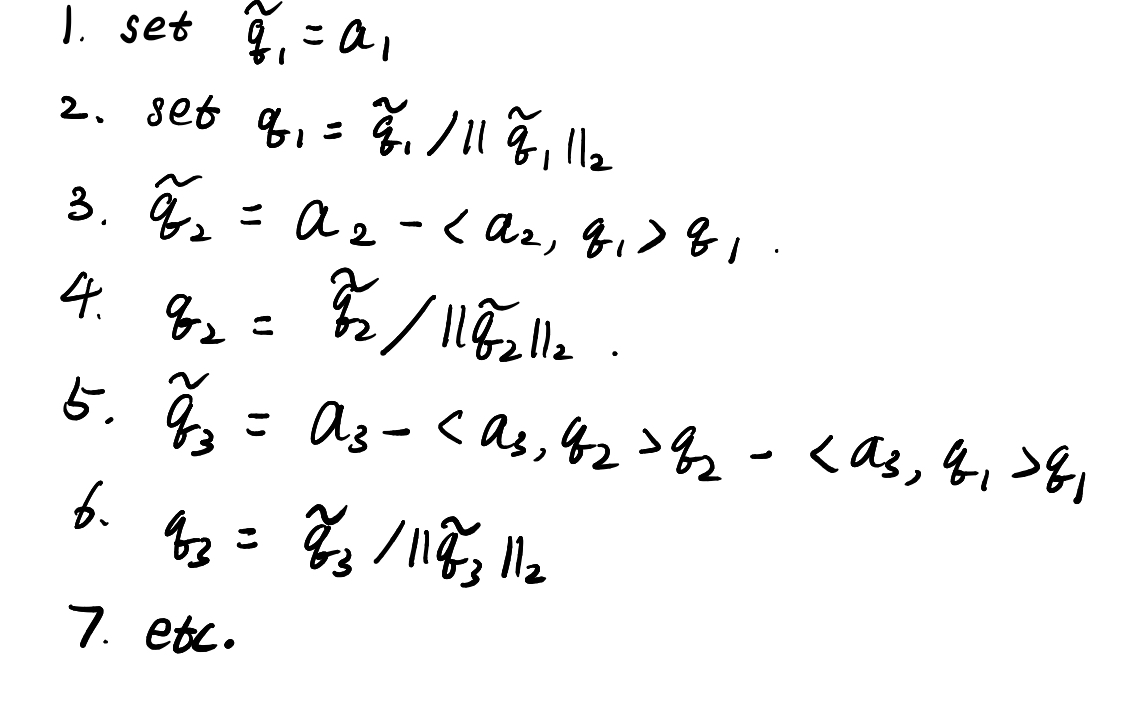 1. set q̃₁ = a₁
2. set q₁ = q̃₁ / ‖ q̃₁ ‖₂
3. q̃₂ = a₂ - < a₂, q₁ > q₁ .
4. q₂ = q̃₂ / ‖q̃₂‖₂ .
5. q̃₃ = a₃ - < a₃, q₂ > q₂ - < a₃, q₁ > q₁
6. q₃ = q̃₃ / ‖q̃₃‖₂
7. etc.